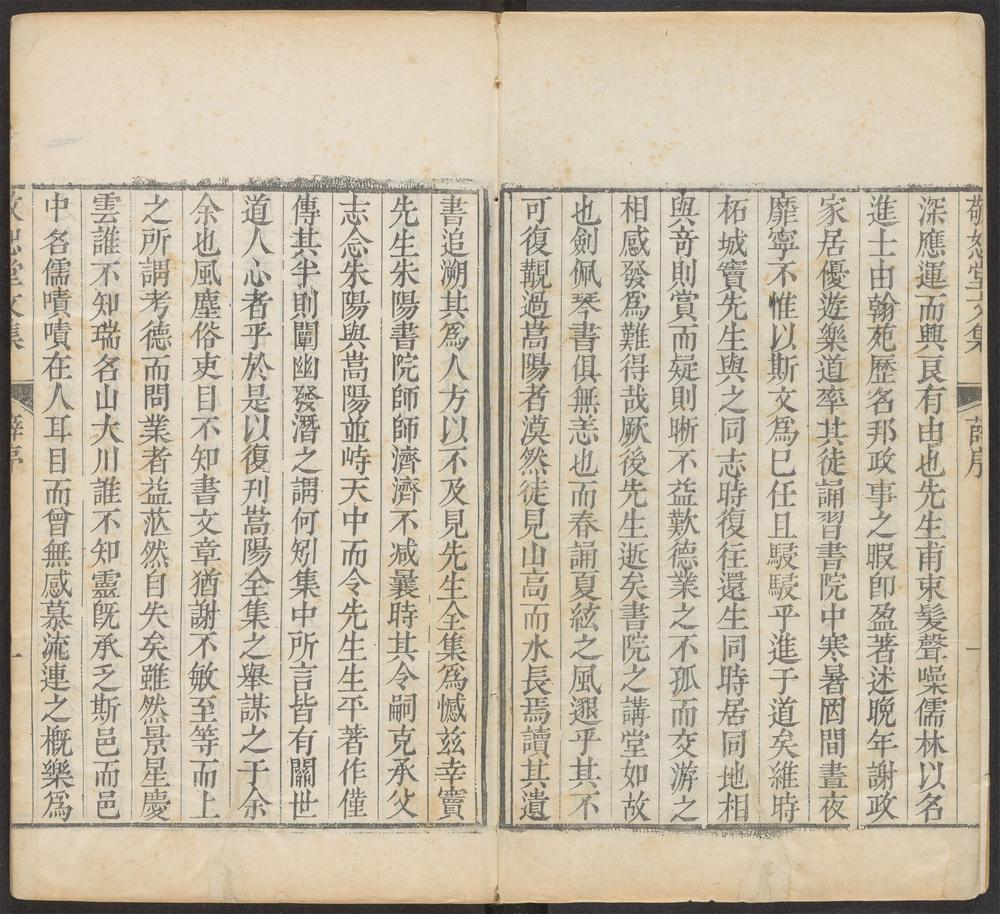 敬恕堂文集 薛序 一
深應運而興良有由也先生甫束髮聲噪儒林以名
進士由翰苑歷名邦政事之暇卽盈著述晩年謝政
家居優遊樂道率其徒誦習書院中寒暑罔間晝夜
靡寧不惟以斯文爲巳任且駸駸乎進于道矣維時
柘城竇先生與之同志時復往還生同時居同地相
與竒則賞而疑則晰不益歎德業之不孤而交游之
相感發爲難得哉厥後先生逝矣書院之講堂如故
也劍佩琴書俱無恙也而春誦夏絃之風邈乎其不
可復觀過嵩陽者漠然徒見山高而水長焉讀其遺
書追溯其爲人方以不及見先生全集爲憾兹幸竇
先生朱陽書院師師濟濟不减曩時其令嗣克承父
志念朱陽與嵩陽並峙天中而令先生生平著作僅
傳其半則闡幽發潛之謂何矧集中所言皆有關世
道人心者乎於是以復刊嵩陽全集之舉謀之于余
余也風塵俗吏目不知書文章猶謝不敏至等而上
之所謂考德而問業者益茫然自失矣雖然景星慶
雲誰不知瑞名山大川誰不知靈旣承乏斯邑而邑
中名儒嘖嘖在人耳目而曾無感慕流連之概樂爲
敬恕堂文集 薛序 一